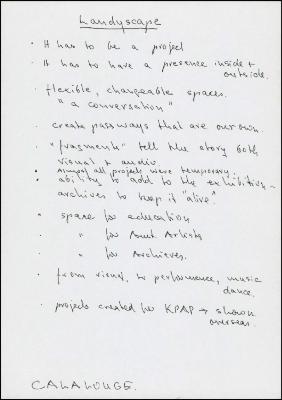 Landyscape
· It has to be a project
· It has to have a presence inside +
outside.
· flexible, changeable spaces.
"a conversation"
· create passways that are our own.
· "fragments" tell the story both
visual + audio
• Almost all projects were temporary.
• ability to add to the exhibition –
archives to keep it "alive"
• space for education
• " for Artists
• " for Archieves.
· from visual, to performance, music
dance.
· projects created for KPAP → shown
overseas.